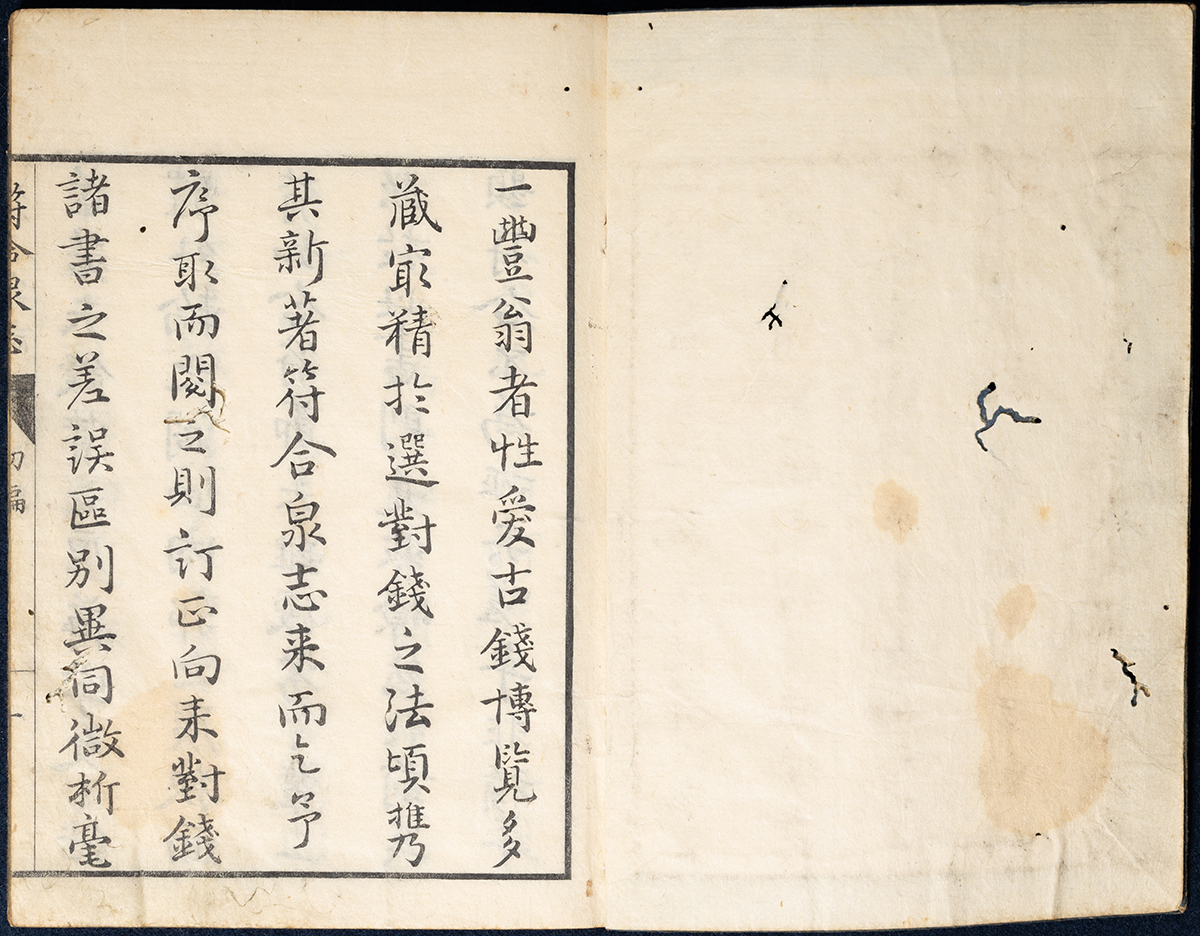 一豐翁者性愛古錢博覧多
蔵㝡精於選對錢之法頃携
其新著符合泉志来而乞予
序取而閱之則訂正向来對錢
諸書之差誤區别異同微析毫
符合泉志 初編 一